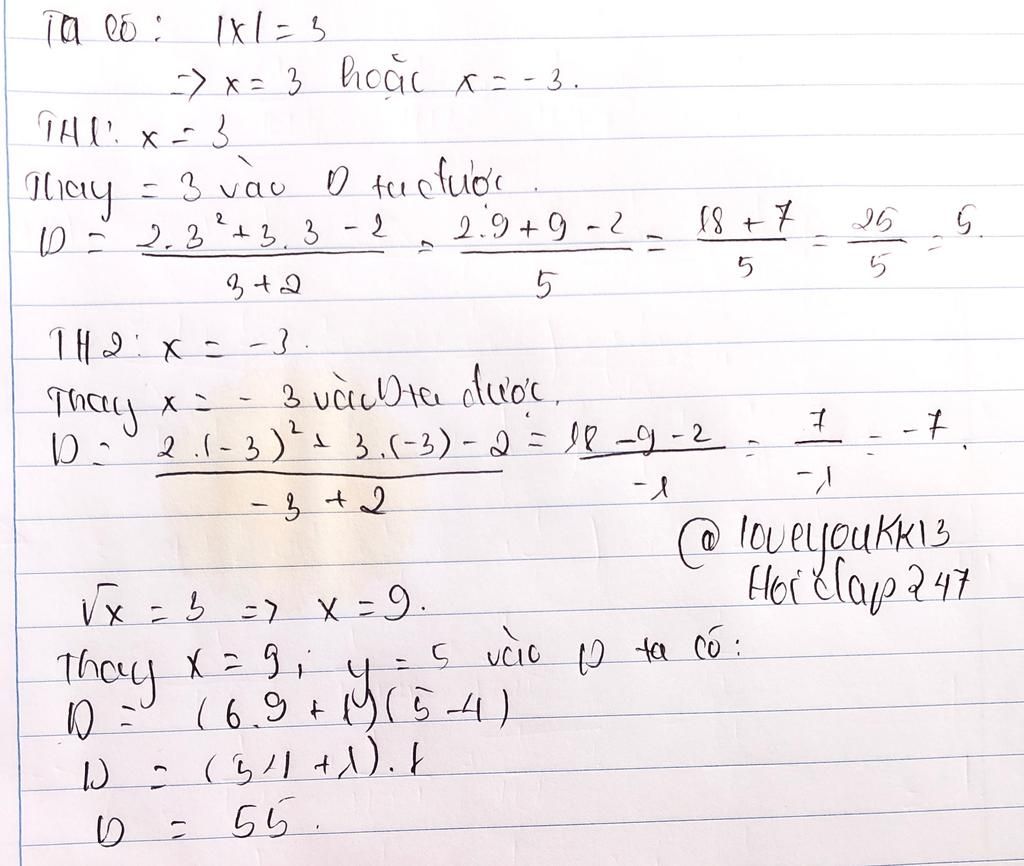 Ta có: |x| = 3
=> x = 3 hoặc x = -3.
TH1: x = 3
Thay = 3 vào D ta được.
D = (2.3² + 3.3 - 2)/(3+2) = (2.9 + 9 - 2)/5 = (18 + 7)/5 = 25/5 = 5.
TH2: x = -3.
Thay x = -3 vào D ta được.
D = (2.(-3)² + 3.(-3) - 2)/(-3 + 2) = (18 - 9 - 2)/(-1) = 7/(-1) = -7.
@ loveyoukk13
Hoidap247
√x = 3 => x = 9.
Thay x = 9; y = 5 vào D ta có:
D = (6.9 + 1)(5-4)
D = (54 + 1).1
D = 55.